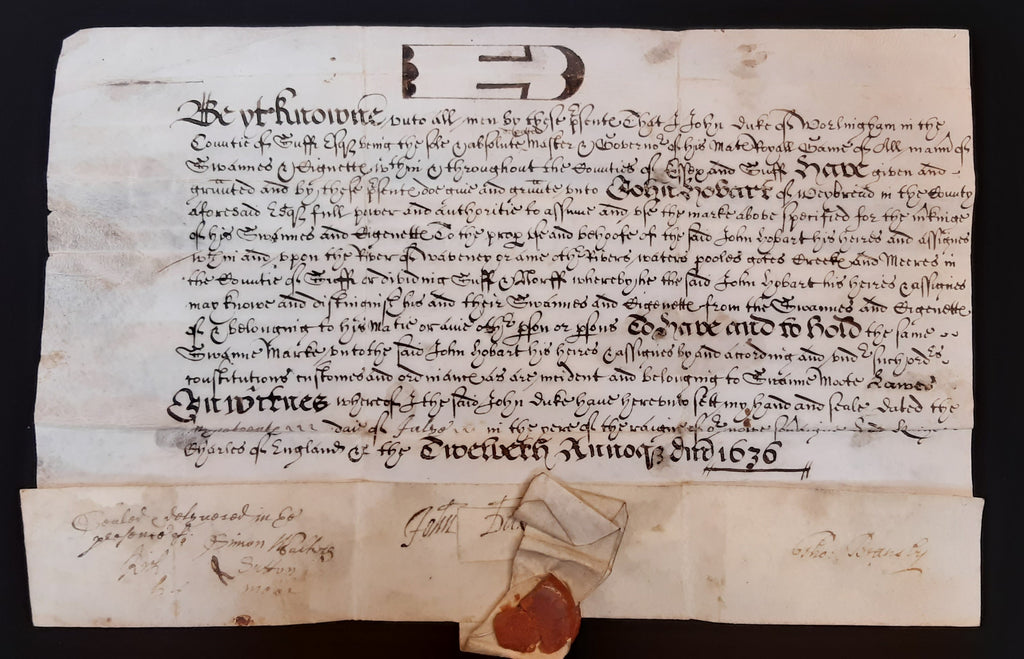 Be yt knowne unto all men by these psents That I John Duke of Worlingham in the
Countie of Suff Esqz being the sole & absolute Master & Governor of his Maties Royall Game of All mann of
Swannes & Cignetts within & throughout the Counties of Essex and Suff Have given and
graunted and by these psents doe give and graunte unto John Hobart of Weybread in the County
aforesaid Esqz full power and authoritie to assume and use the marke above specified for the markinge
of his Swannes and Cignetts To the prop use and behoofe of the said John Hobart his heires and assignes
wthin and uppon the River of Waveney or anie othr Rivers waters pooles Creeks and Meeres in
the Countie of Suff or dividing Suff & Norff whereby he the said John Hobart his heires & assignes
may knowe and distinguish his and their Swannes and Cignetts from the Swannes and Cignetts
of & belonging to his Matie or anie othr pson or psons To have and to hold the same
Swanne Marke unto the said John Hobart his heires & assignes by and according and undr such ordrs
constitutions customes and ordinances as are incident and belonging to Swanne Moote Lawes
In witnes whereof I the said John Duke have hereunto sett my hand and seale dated the
daie of in the yere of the raigne of
Charles of England &c the Twelveth Annoqz dni 1636
Sealed & delyvered in ye
presence of:
Simon
Sutton
John
Tho: Bransby